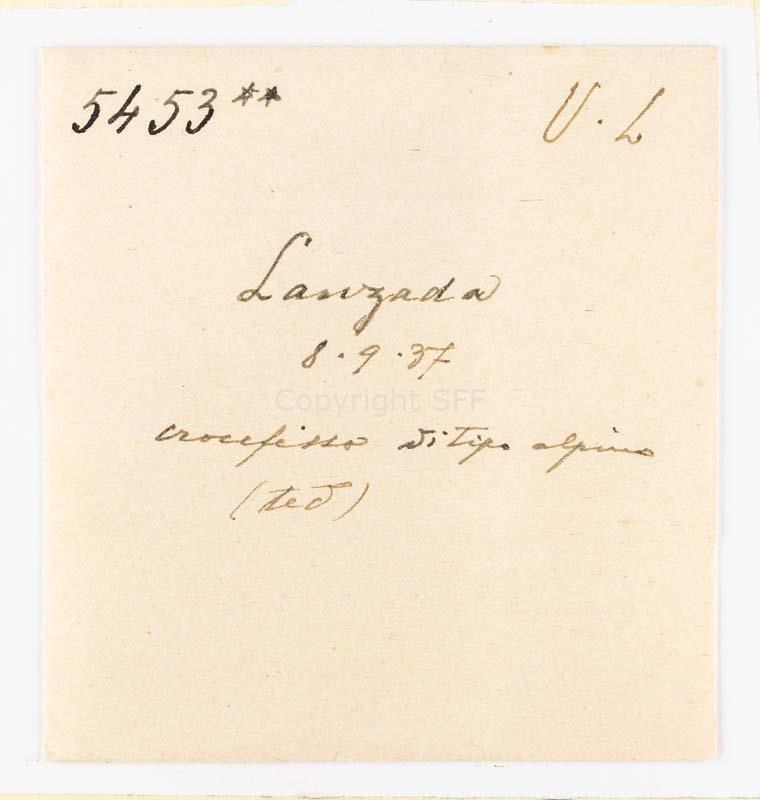 5453** U. L
Lanzada
8.9.37
Copyright SFF
crocefisso di tipo alpino
(ted)